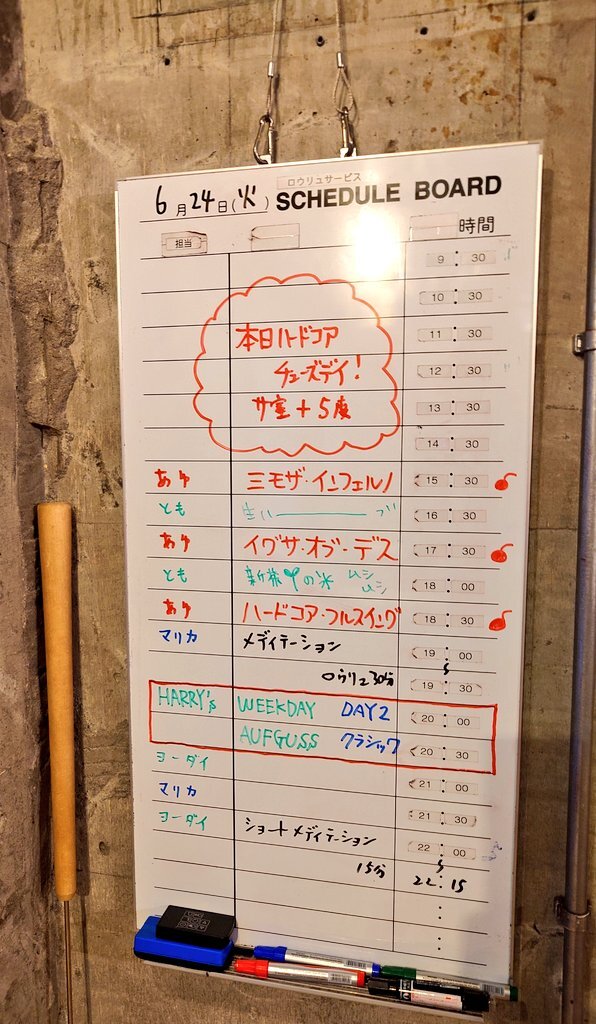 6月24日(火) ロウリュサービス SCHEDULE BOARD
担当 時間
9:30
10:30
本日ハードコア 11:30
チューズデイ! 12:30
サ室+5度 13:30
14:30
あゆ ミモザ・インフェルノ 15:30
とも 16:30
あゆ イグサ・オブ・デス 17:30
とも の米 ムシムシ 18:00
あゆ ハードコア・フルスイング 18:30
マリカ メディテーション 19:00
ロウリュ30分 19:30
HARRY's WEEKDAY DAY2 20:00
AUFGUSS クラシック 20:30
ヨーダイ 21:00
マリカ 21:30
ヨーダイ ショートメディテーション 22:00
15分 22:15